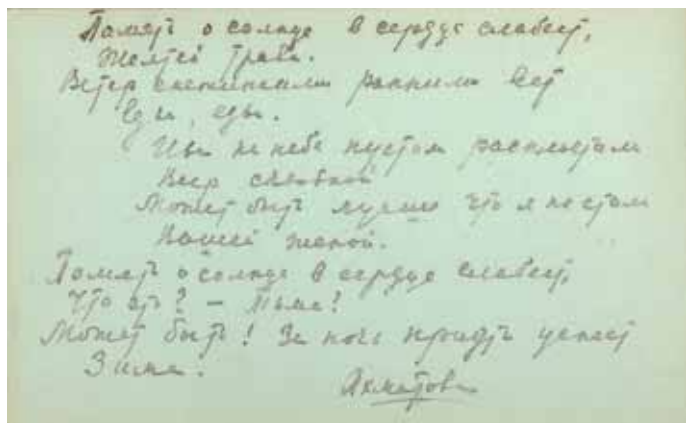 Память о солнце в сердце слабеет,
Желтей трава.
Ветер снежинками ранними веет
Едва, едва.
Ива на небе пустом распластала
Веер сквозной
Может быть лучше что я не стала
Вашей женой.
Память о солнце в сердце слабеет,
Что это? — Тьма?
Может быть! За ночь придти успеет
Зима.
Ахматова